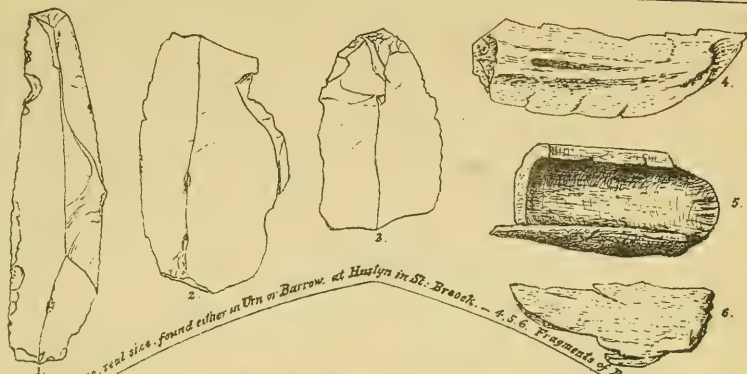 4.
5.
3.
2.
6.
1.
real size, found either in Urn or Barrow, at Huslyn in St: Breock. – 4.5.6. Fragments of